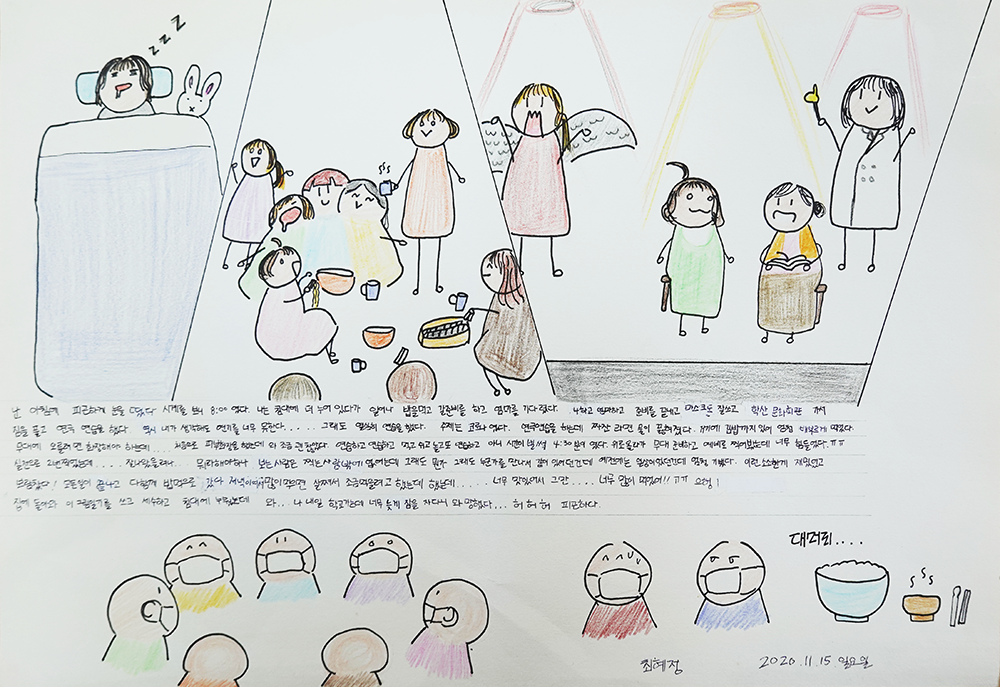 z z z
난 아침에 피곤하게 눈을 떴다 시계를 보니 8:00 였다. 나는 침대에 더 누워 있다가 일어나 밥을 먹고 갈준비를 하고 연기를 하고 준비를 끝내고 마스크도 잘쓰고 학산 문화회관 가서
짐을 풀고 연극 연습을 했다. 역시 내가 생각해도 연기를 너무 못한다...... 그래도 열심히 연습을 했다. 주제는 코로나 였다. 연극연습을 하는데 짜장 라면 씬이 있다.
무대에 오를려면 화장해야 하는데.... 처음으로 피부화장을 했는데 와 조금 괜찮았다. 연습하고 연습하고 먹고 쉬고 놀고 또 연습하고 아니 시간이 벌써 4:30분이 였다. 위로 올라가 무대 준비하고 예비로 찍어봤는데 너무 힘들었다.ㅠㅠ
실전으로 2번찍었는데..... 잘나왔을려나... 뭐라해야하나 보는사람은 찍는사람밖에 없어는데 그래도 뭔가 그래도 누군가를 만나서 같이 있어던건데 예전에는 일상이었던건데 엄청 기뻤다. 이런 소소한게 재밌었고
또 모든일이 끝나고 다함께 밥먹으로 갔다 저녁이여서 많이먹으면 살쪄서 조금먹을려고 했는데 했는데...... 너무 맛있어서 그만..... 너무 많이 먹었어!! ㅠㅠ
집에 돌아와 이 그림일기를 쓰고 세수하고 침대에 누웠는데 와... 나 내일 학교가는데 너무 늦게 잠을 자다니 와 망했다... 허 허 허 피곤하다.
대퍼리....
최혜정
2020.11.15 일요일